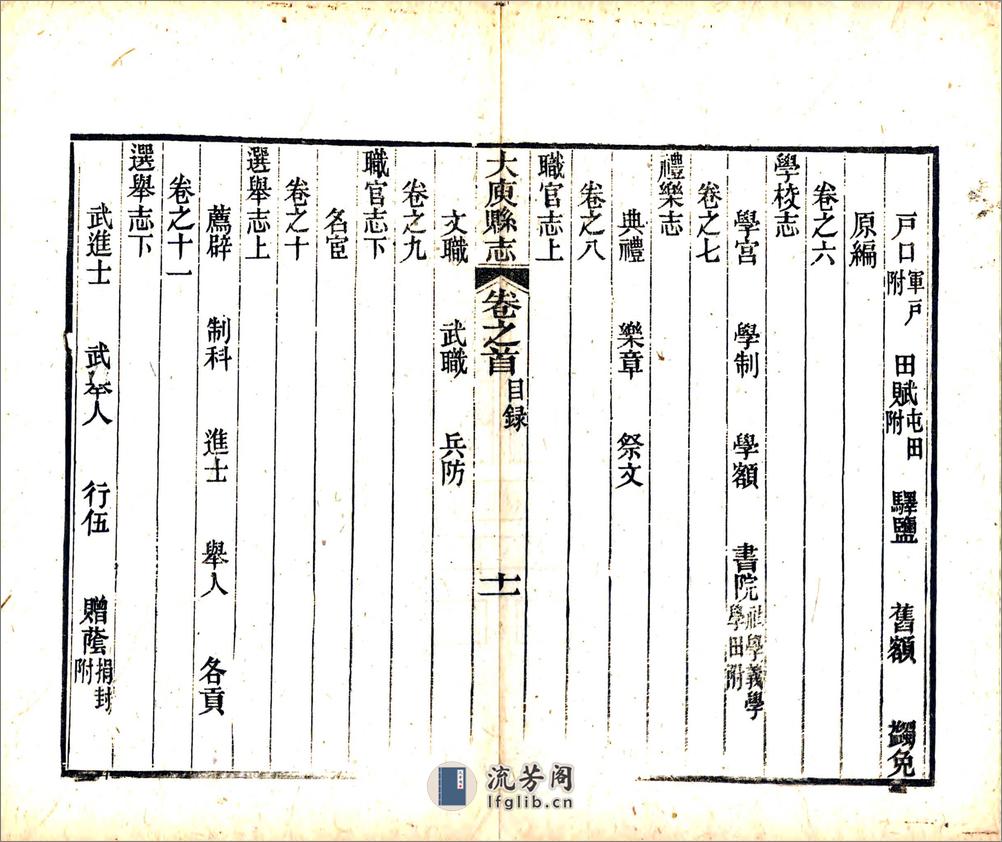 戶口軍戶附　田賦屯田附　驛鹽　舊額　蠲免
原編
卷之六
學校志
學宮　學制　學額　書院社學義學學田附
卷之七
禮樂志
典禮　樂章　祭文
卷之八
職官志上
大庾縣志　卷之首　目録　十一
文職　武職　兵防
卷之九
職官志下
名宦
卷之十
選舉志上
薦辟　制科　進士　舉人　各貢
卷之十一
選舉志下
武進士　武舉人　行伍　贈蔭捐封附
流芳阁
lfglib.cn